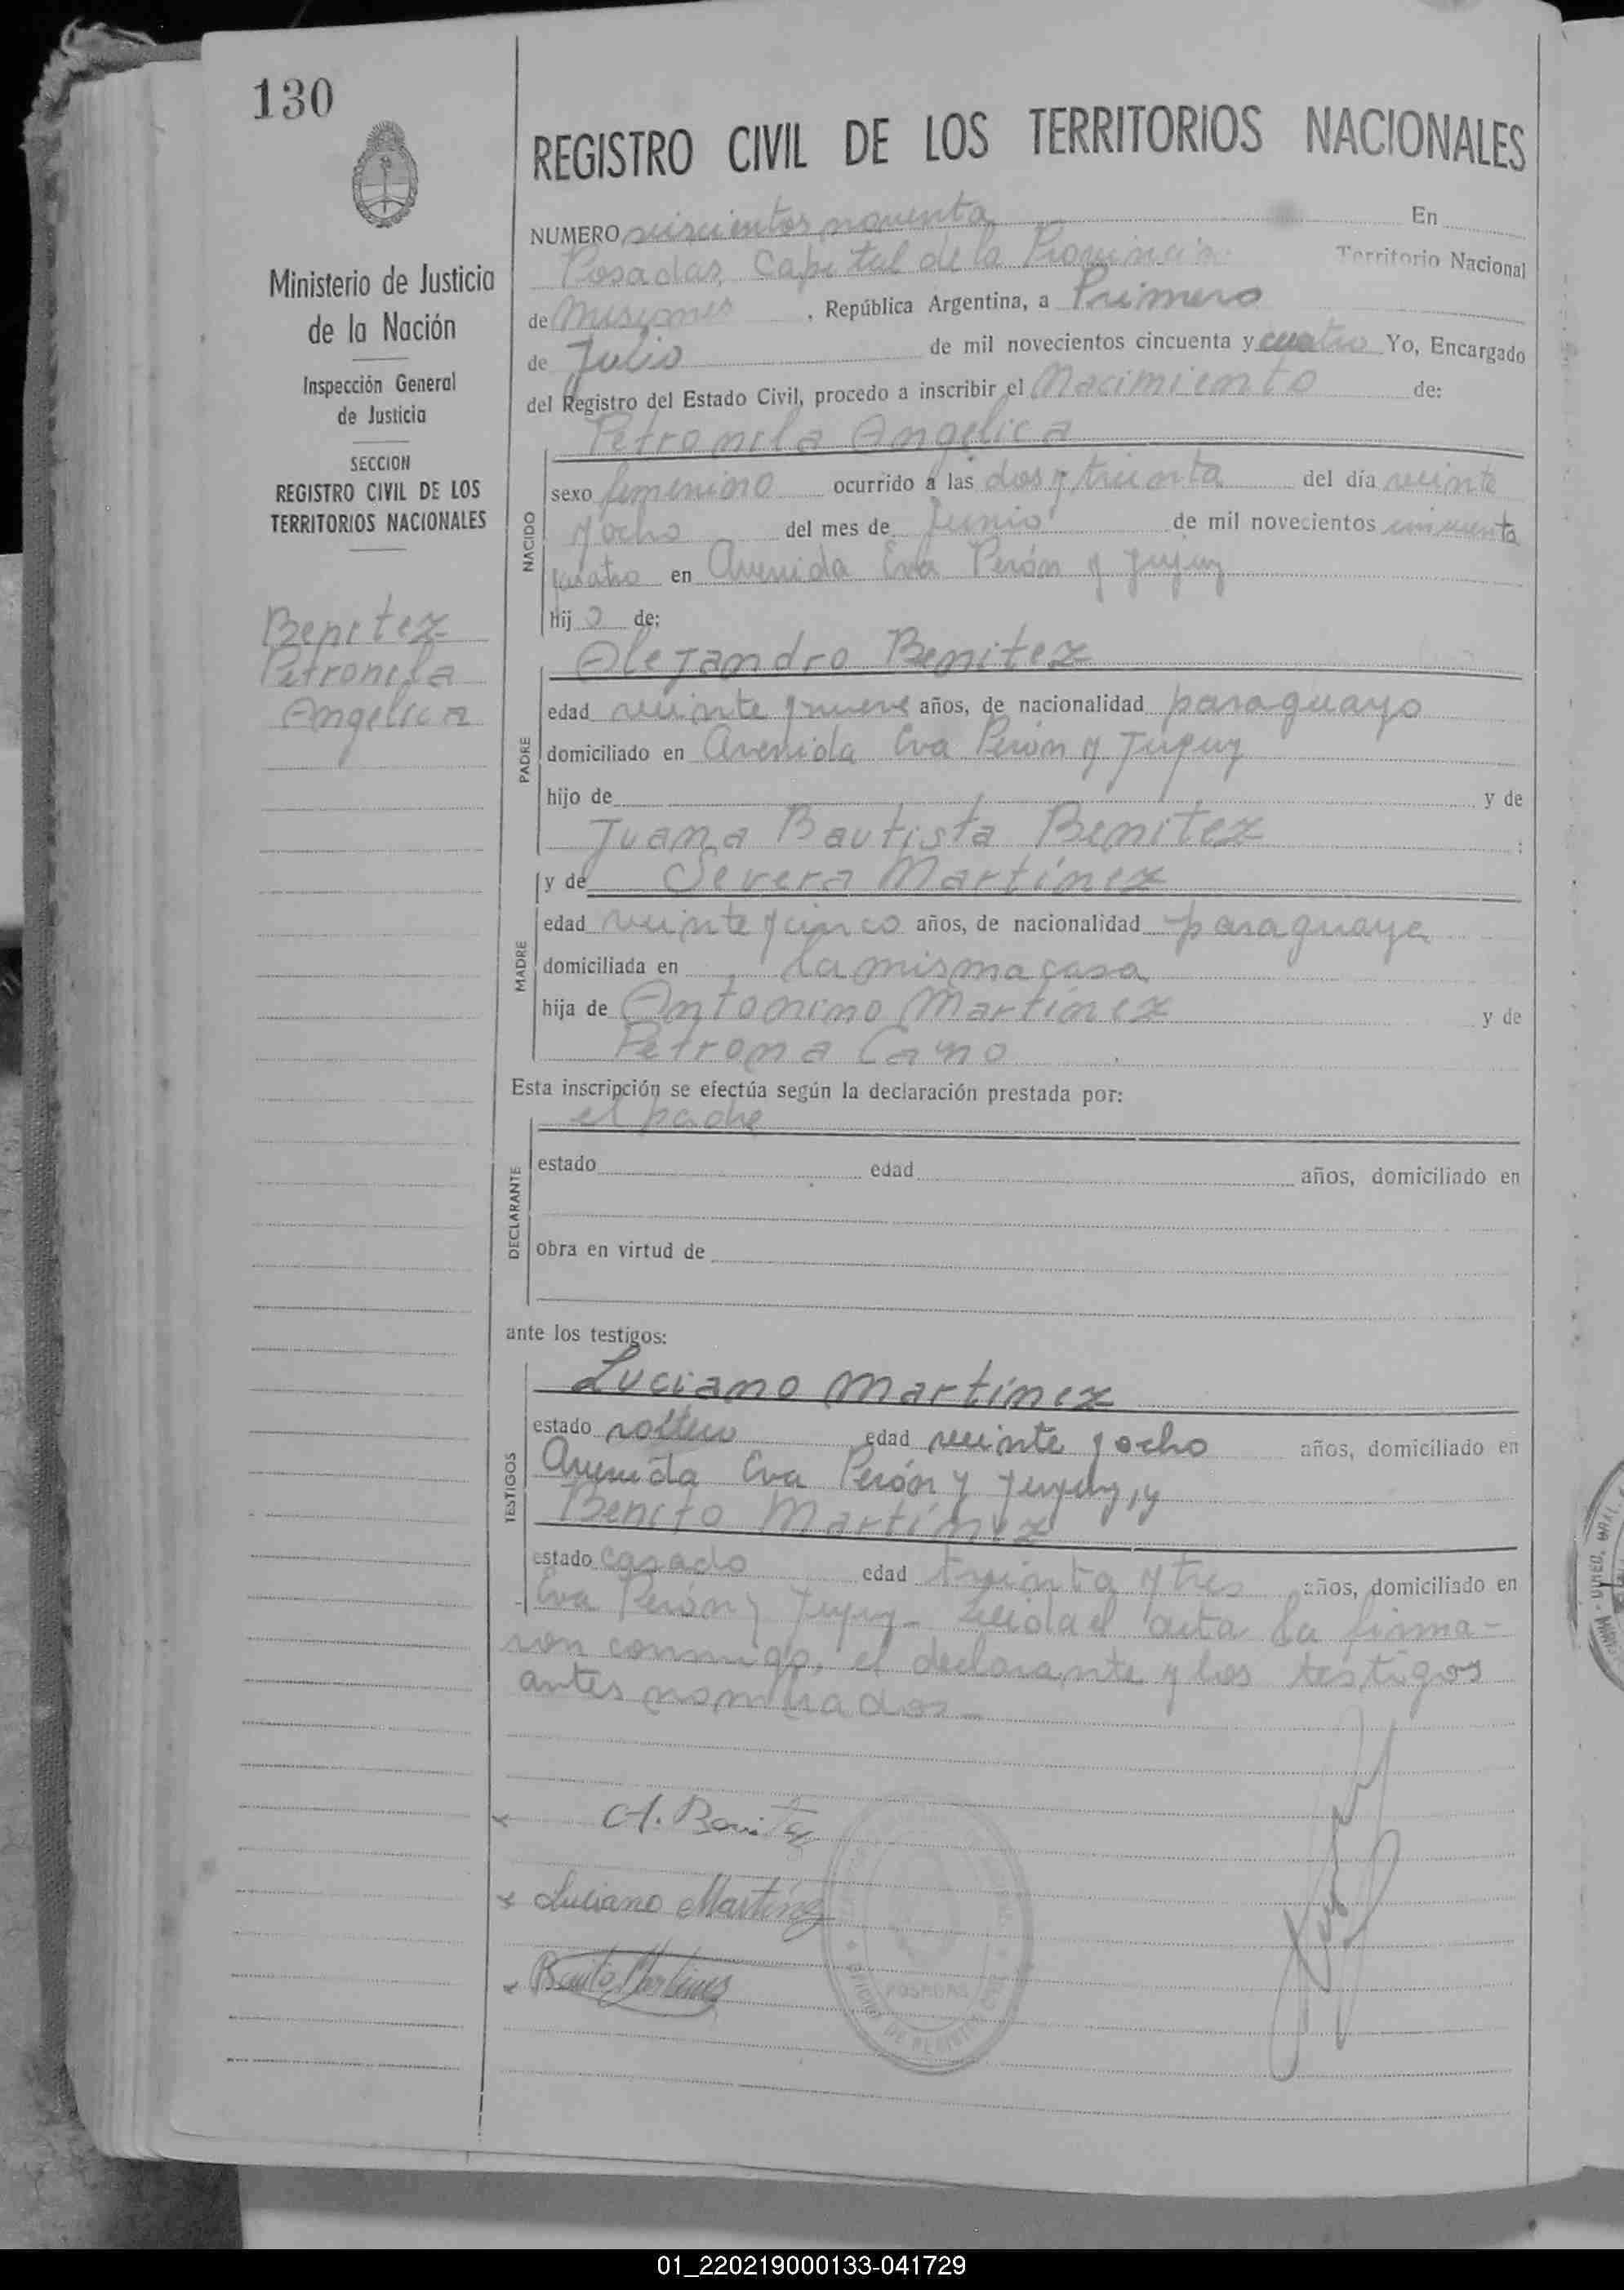 130
REGISTRO CIVIL DE LOS TERRITORIOS NACIONALES
Ministerio de Justicia
de la Nación
Inspección General
de Justicia
SECCION
REGISTRO CIVIL DE LOS
TERRITORIOS NACIONALES
Benitez
Petronila
Angelica
NUMERO seiscientos noventa En
Posadas, Capital de la Provincia Territorio Nacional
de Misiones, República Argentina, a Primero
de Julio de mil novecientos cincuenta y cuatro Yo, Encargado
del Registro del Estado Civil, procedo a inscribir el Nacimiento de:
Petronila Angelica
NACIDO
sexo femenino ocurrido a las dos y treinta del día veinte
y ocho del mes de Junio de mil novecientos cincuenta
cuatro en Avenida Eva Perón y Jujuy
hij a de:
Alejandro Benitez
PADRE
edad veinte y nueve años, de nacionalidad paraguayo
domiciliado en Avenida Eva Perón y Jujuy
hijo de y de
Juana Bautista Benitez :
y de Severa Martínez
MADRE
edad veinte y cinco años, de nacionalidad paraguaya
domiciliada en la misma casa
hija de Antonino Martínez y de
Petrona Cano
Esta inscripción se efectúa según la declaración prestada por:
el padre
DECLARANTE
estado edad años, domiciliado en
obra en virtud de
ante los testigos:
Luciano Martínez
TESTIGOS
estado soltero edad veinte y ocho años, domiciliado en
Avenida Eva Perón y Jujuy, y
Benito Martínez
estado casado edad treinta y tres años, domiciliado en
Eva Perón y Jujuy - Leida el acta la firma-
ron conmigo, el declarante y los testigos
antes nombrados -
A. Benitez
Luciano Martínez
Benito Martinez
POSADAS
01_220219000133-041729